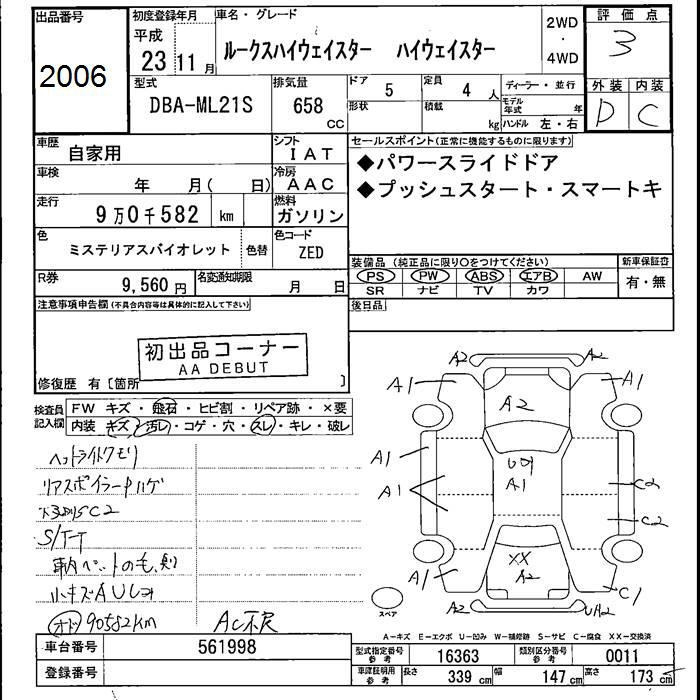 出品番号
2006
初度登録年月
平成
23 11 月
車名・グレード
ルークスハイウェイスター ハイウェイスター
2WD
・
4WD
評価点
3
外装 内装
D C
型式
DBA-ML21S
排気量
658
CC
ドア
5
定員
4 人
形状
積載
kg
ディーラー・並行
モデル年式 年
ハンドル 左・右
車歴
自家用
シフト
IAT
車検
年 月( 日)
冷房
AAC
走行
9万0千582 km
燃料
ガソリン
色
ミステリアスバイオレット
色替
色コード
ZED
R券
9,560 円
名変通知期限
月 日
セールスポイント(正常に機能するものに限ります)
◆パワースライドドア
◆プッシュスタート・スマートキ
装備品(純正品に限り〇をつけてください)
PS PW ABS エアB AW
SR ナビ TV カワ
新車保証書
有・無
後日品
注意事項申告欄(不具合内容等は具体的に記入して下さい)
初出品コーナー
AA DEBUT
修復歴 有〔箇所 〕
検査員
記入欄
FW キズ・飛石・ヒビ割・リペア跡・×要
内装 キズ・汚レ・コゲ・穴・スレ・キレ・破レ
ヘッドライトクモリ
リアスポイラー
C2
S/T
小キズAU
90582km
AC不良
A2 A2
A1 A1
A2
A1
A1
A1
C2
C2
XX
A2
A1
C1
A2
UA2
スペア
A-キズ E-エクボ U-凹み W-補修跡 S-サビ C-腐食 XX-交換済
車台番号
561998
登録番号
型式指定番号
参考
16363
類別区分番号
参考
0011
車庫証明用
参考
長さ
339 cm
幅
147 cm
高さ
173 cm